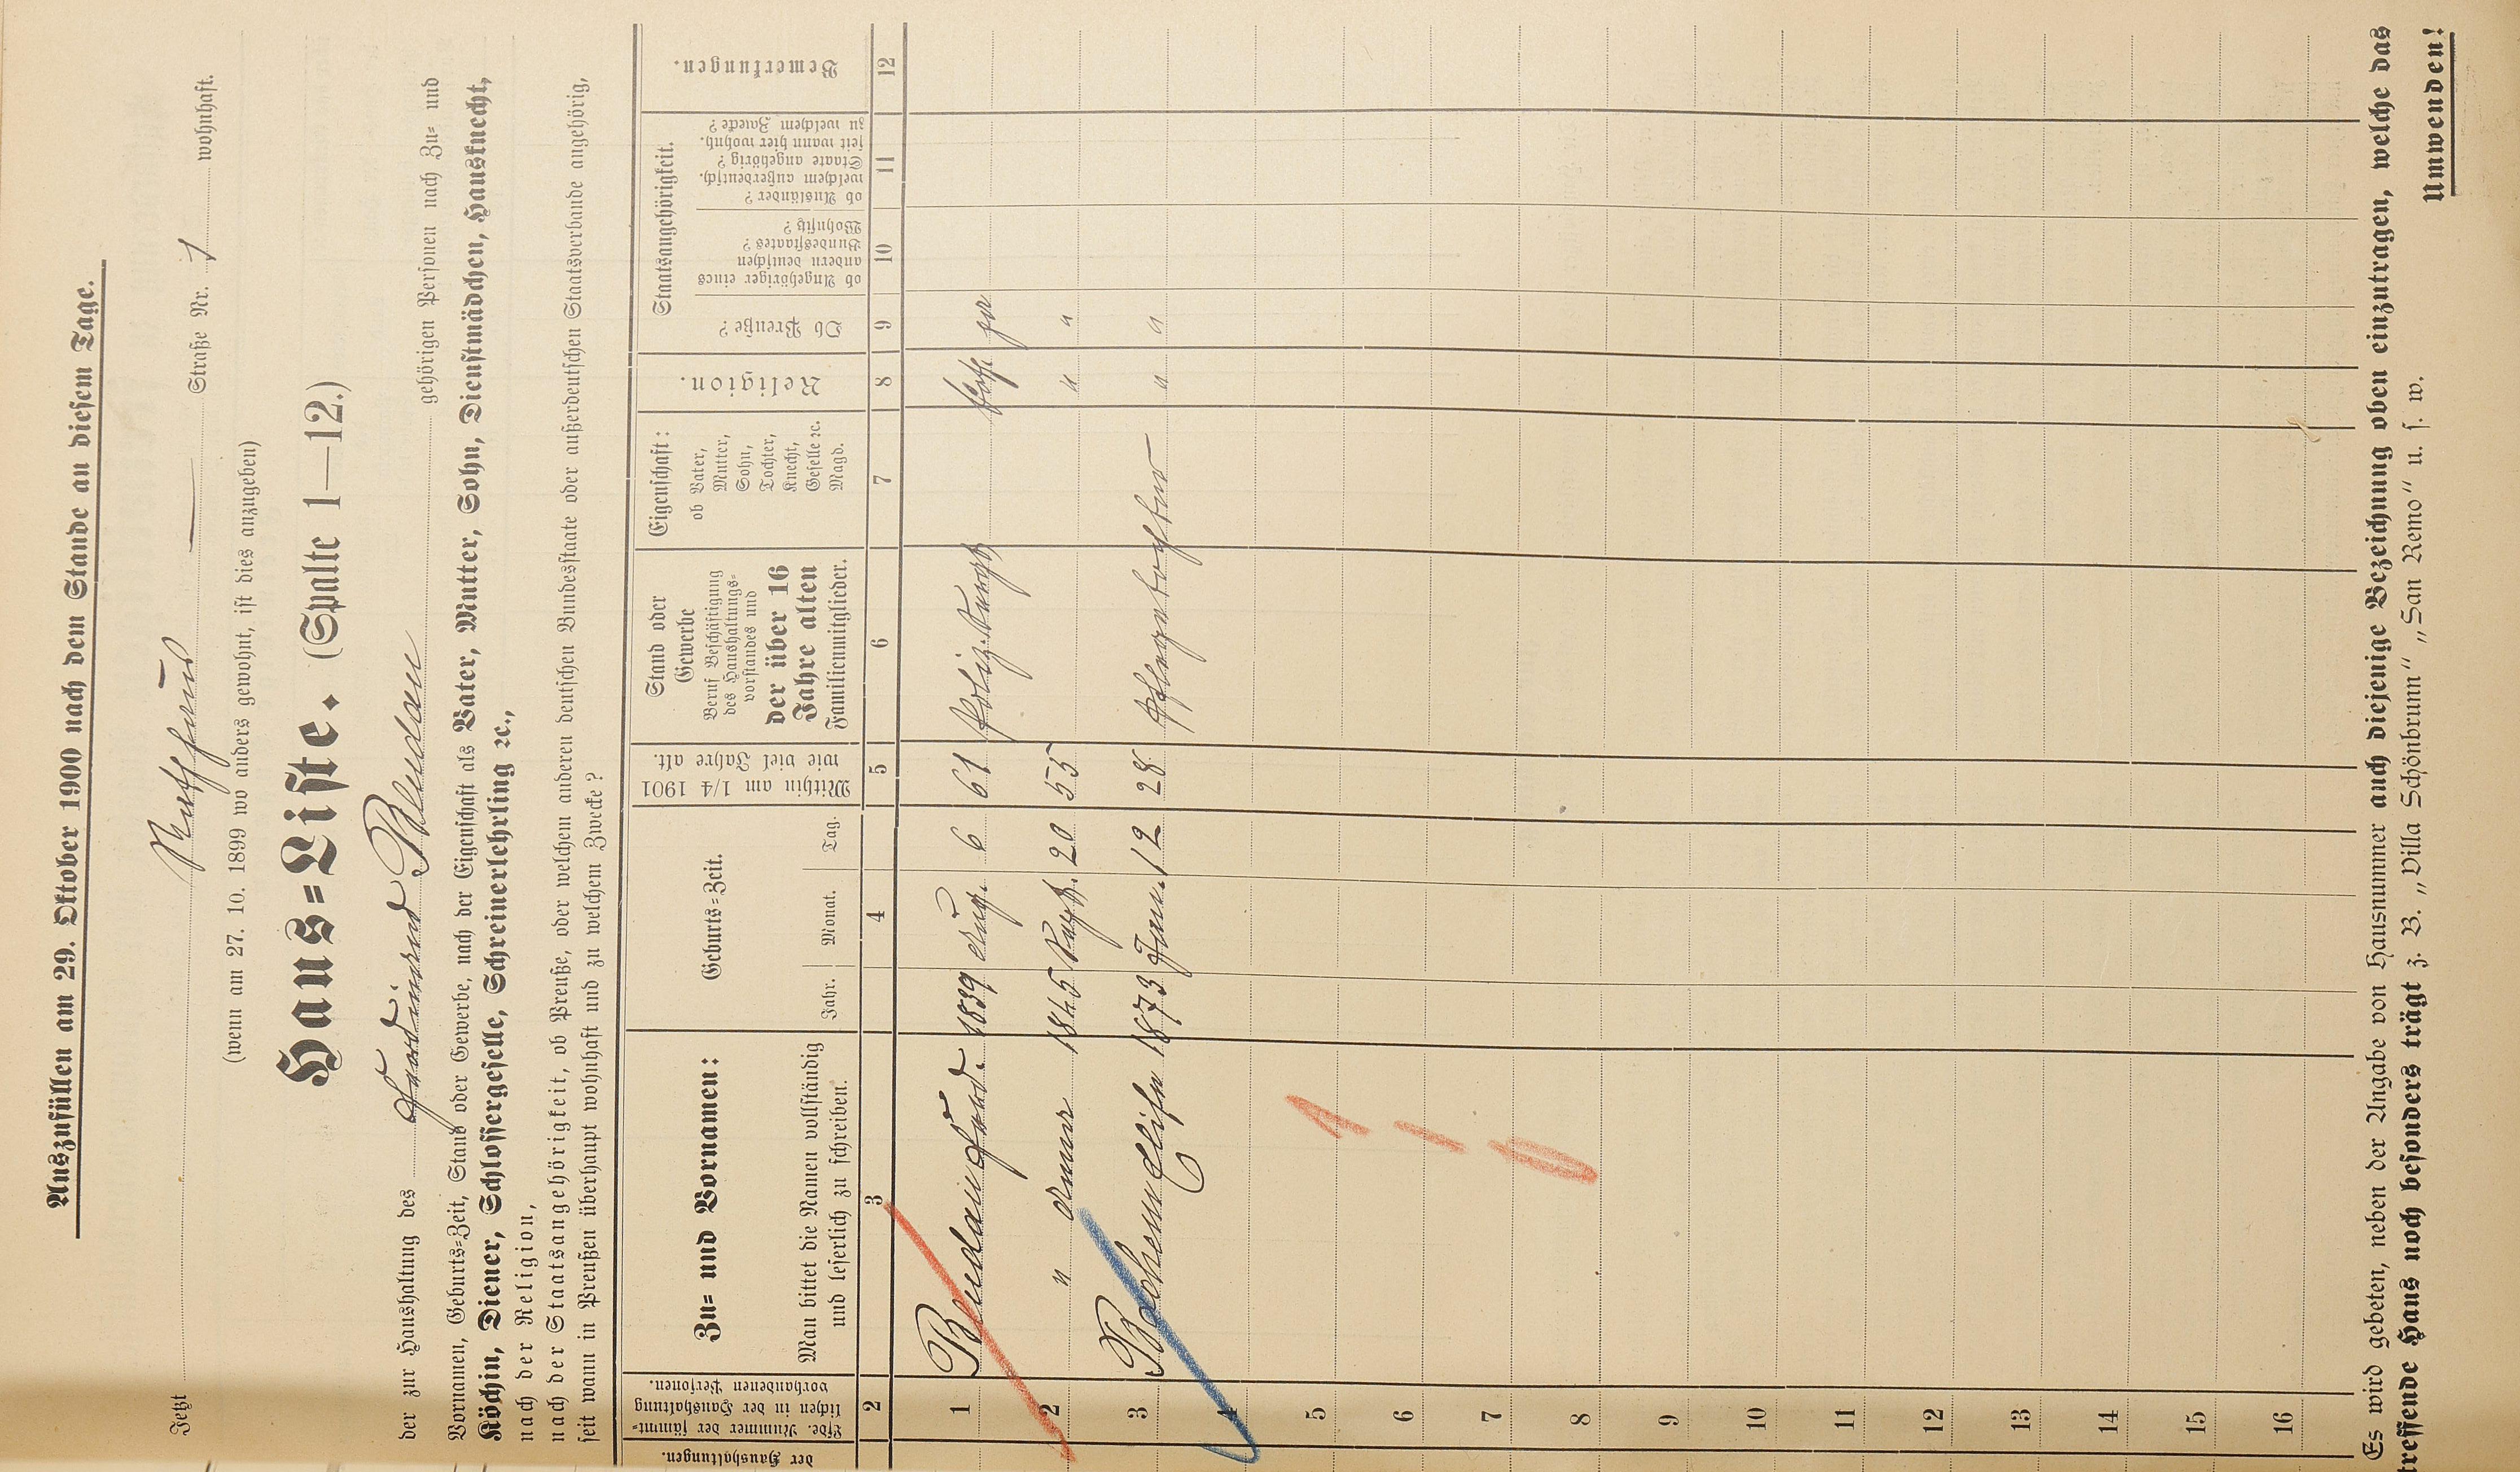 Auszufüllen am 29. Oktober 1900 nach dem Stande an diesem Tage.
Jetzt Rathhaus — Straße Nr. 1 wohnhaft.
(wenn am 27. 10. 1899 wo anders gewohnt, ist dies anzugeben)
Haus=Liste. (Spalte 1—12.)
der zur Haushaltung des Ferdinand gehörigen Personen nach Zu= und
Vornamen, Geburts=Zeit, Stand oder Gewerbe, nach der Eigenschaft als Vater, Mutter, Sohn, Dienstmädchen, Hausknecht,
Köchin, Diener, Schlossergeselle, Schreinerlehrling ꝛc.,
nach der Religion,
nach der Staatsangehörigkeit, ob Preuße, oder welchem anderen deutschen Bundesstaate oder außerdeutschen Staatsverbande angehörig,
seit wann in Preußen überhaupt wohnhaft und zu welchem Zwecke?
der Haushaltungen.
Lfde. Nummer der sämmt=
lichen in der Haushaltung
vorhandenen Personen.
Zu= und Vornamen:
Man bittet die Namen vollständig
und leserlich zu schreiben.
Geburts=Zeit.
Jahr. Monat. Tag.
Mithin am 1/4 1901
wie viel Jahre alt.
Stand oder
Gewerbe
Beruf Beschäftigung
des Haushaltungs=
vorstandes und
der über 16
Jahre alten
Familienmitglieder.
Eigenschaft:
ob Vater,
Mutter,
Sohn,
Tochter,
Knecht,
Geselle ꝛc.
Magd.
Religion.
Staatsangehörigkeit.
Ob Preuße?
ob Angehöriger eines
andern deutschen
Bundesstaates?
Wohnsitz?
ob Ausländer?
welchem außerdeutsch.
Staate angehörig?
seit wann hier wohnh.
zu welchem Zwecke?
Bemerkungen.
2 3 4 5 6 7 8 9 10 11 12
1 Ferd. 1839 Aug. 6 61 Poliz. Sergt. kath. ja
2 " Anna 1845 Sept. 20 55 " "
3 Elise 1873 Jan. 12 28 Pflegetochter " "
4
5
6
7
8
9
10
11
12
13
14
15
16
1 — 0
Es wird gebeten, neben der Angabe von Hausnummer auch diejenige Bezeichnung oben einzutragen, welche das
treffende Haus noch besonders trägt z. B. „Villa Schönbrunn“ „San Remo“ u. s. w.
Umwenden!